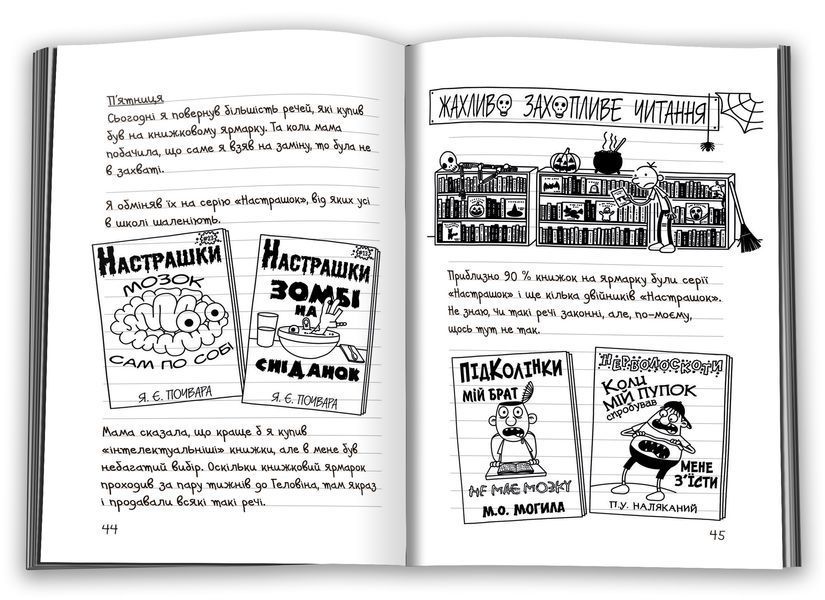 П'ятниця
Сьогодні я повернув більшість речей, які купив
був на книжковому ярмарку. Та коли мама
побачила, що саме я взяв на заміну, то була не
в захваті.
Я обміняв їх на серію «Настрашок», від яких усі
в школі шаленіють.
НАСТРАШКИ
МОЗОК
САМ ПО СОБІ
Я. Є. ПОЧВАРА
НАСТРАШКИ
ЗОМБІ
НА
СНІДАНОК
Я. Є. ПОЧВАРА
Мама сказала, що краще б я купив
«інтелектуальніші» книжки, але в мене був
небагатий вибір. Оскільки книжковий ярмарок
проходив за пару тижнів до Геловіна, там якраз
і продавали всякі такі речі.
44
ЖАХЛИВО ЗАХОПЛИВЕ ЧИТАННЯ
Приблизно 90 % книжок на ярмарку були серії
«Настрашок» і ще кілька двійників «Настрашок».
Не знаю, чи такі речі законні, але, по-моєму,
щось тут не так.
ПІДКОЛІНКИ
МІЙ БРАТ
НЕ МАЄ МОЗКУ
М.О. МОГИЛА
НЕРВОЛОСКОТИ
КОЛИ
МІЙ ПУПОК
спробував
МЕНЕ
З'ЇСТИ
П.У. НАЛЯКАНИЙ
45